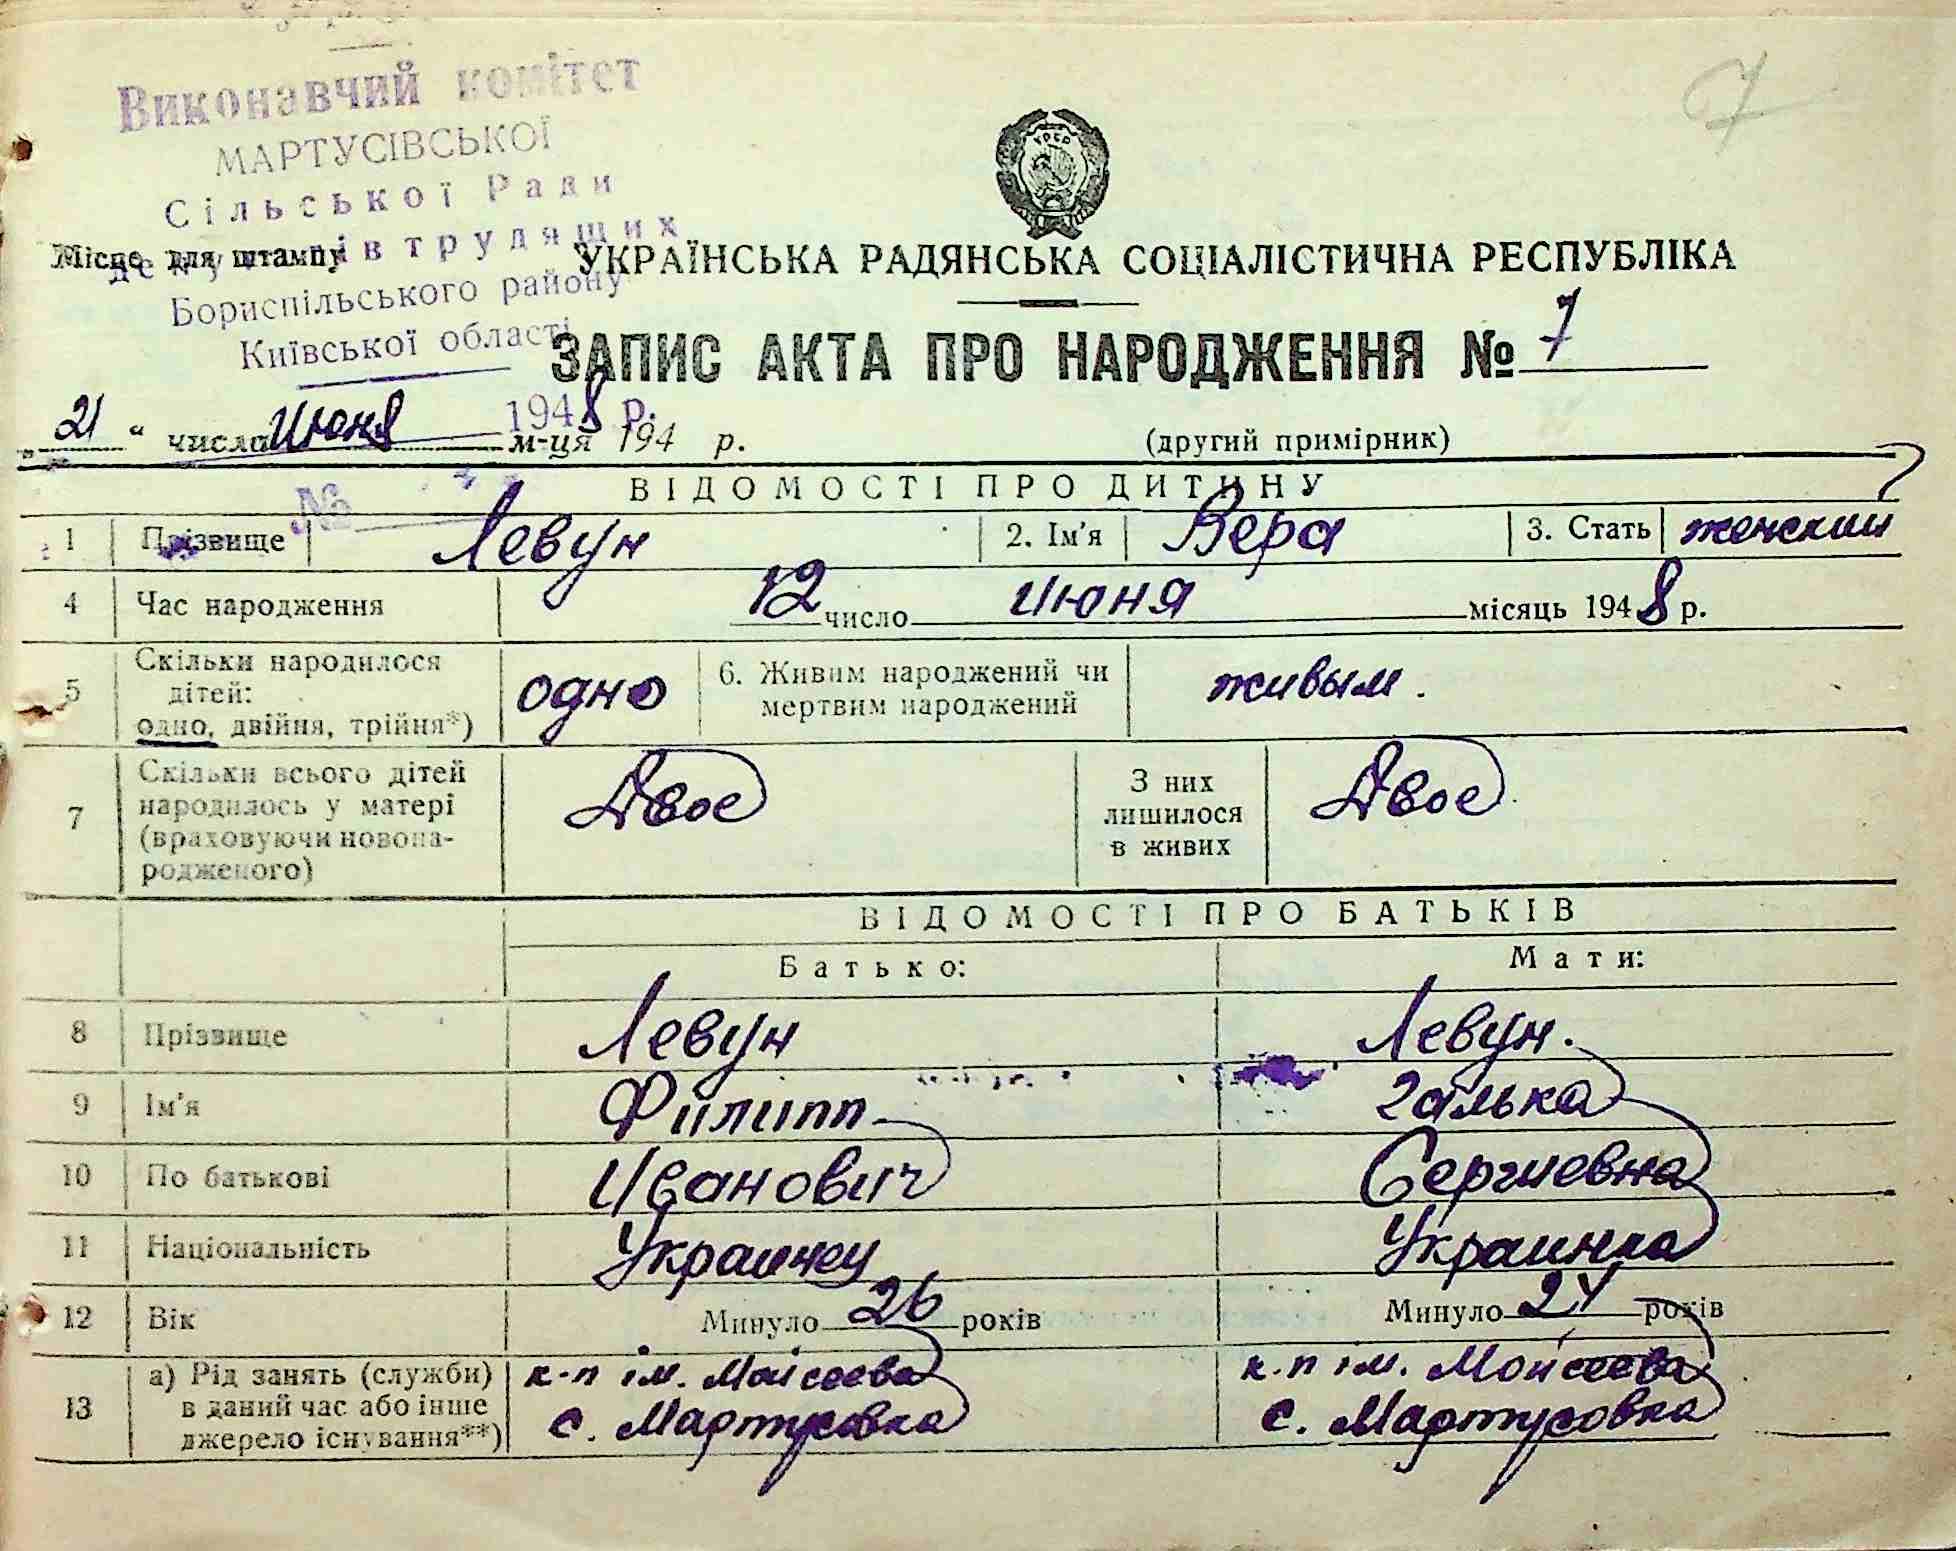 Виконавчий комітет
МАРТУСІВСЬКОЇ
Сільської Ради
депутатів трудящих
Бориспільського району
Київської області
1948 р.
№
7
УРСР
Місце для штампу
УКРАЇНСЬКА РАДЯНСЬКА СОЦІАЛІСТИЧНА РЕСПУБЛІКА
ЗАПИС АКТА ПРО НАРОДЖЕННЯ № 7
„21“ числа Июня м-ця 194 р. (другий примірник)
ВІДОМОСТІ ПРО ДИТИНУ
1 Прізвище Левун 2. Ім'я Вера 3. Стать женский
4 Час народження 12 число Июня місяць 1948 р.
5 Скільки народилося дітей: одно, двійня, трійня*) одно 6. Живим народжений чи мертвим народжений живым.
7 Скільки всього дітей народилось у матері (враховуючи новона-родженого) Двое З них лишилося в живих Двое
ВІДОМОСТІ ПРО БАТЬКІВ
Батько: Мати:
8 Прізвище Левун Левун.
9 Ім'я Филипп Галька
10 По батькові Иванович Сергиевна
11 Національність Украинец Украинка
12 Вік Минуло 26 років Минуло 24 років
13 а) Рід занять (служби) в даний час або інше джерело існування**) к-п ім. Моісеева с. Мартусовка к.п ім. Мойсеева с. Мартусовка